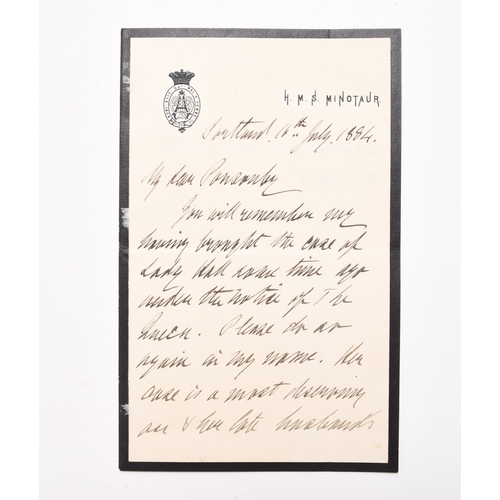 H. M. S. MINOTAUR
Portland. 16th July. 1884.
My dear Ponsonby
You will remember my
having brought the case of
Lady Hall some time ago
under the notice of The
Queen. Please do so
again in my name. Her
case is a most deserving
one & her late husband's